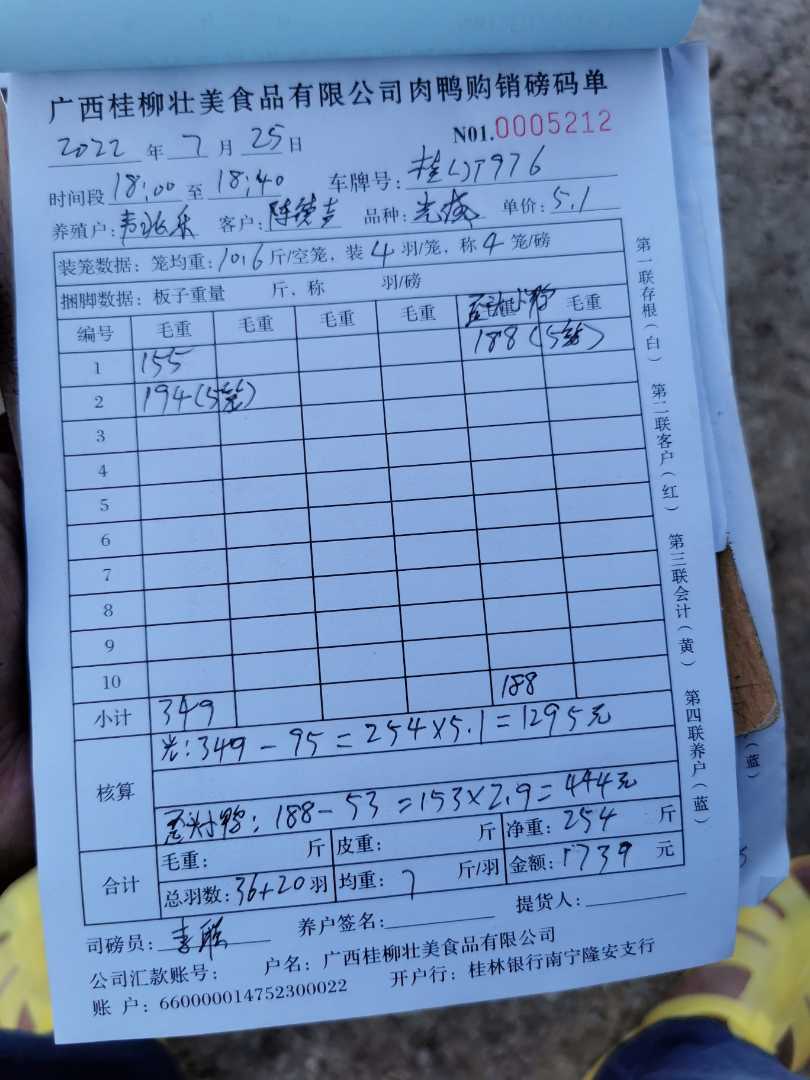 广西桂柳壮美食品有限公司肉鸭购销磅码单
2022年7月25日 N01.0005212
时间段18:00至18:40 车牌号:桂LJT976
养殖户: 客户: 品种: 单价:5.1
装笼数据:笼均重:10.6斤/空笼,装4羽/笼,称4笼/磅
捆脚数据:板子重量 斤,称 羽/磅
编号 毛重 毛重 毛重 毛重 毛重
1 155 188(5笼)
2 194(5笼)
3
4
5
6
7
8
9
10 188
小计 349
核算 光:349-95=254×5.1=1295元
188-53=153×2.9=444元
合计 毛重: 斤 皮重: 斤 净重:254斤
总羽数:36+20羽 均重:7斤/羽 金额:1739元
司磅员: 养户签名: 提货人:
公司汇款账号: 户名:广西桂柳壮美食品有限公司
账 户:660000014752300022 开户行:桂林银行南宁隆安支行
第一联存根(白) 第二联客户(红) 第三联会计(黄) 第四联养户(蓝)
(蓝)